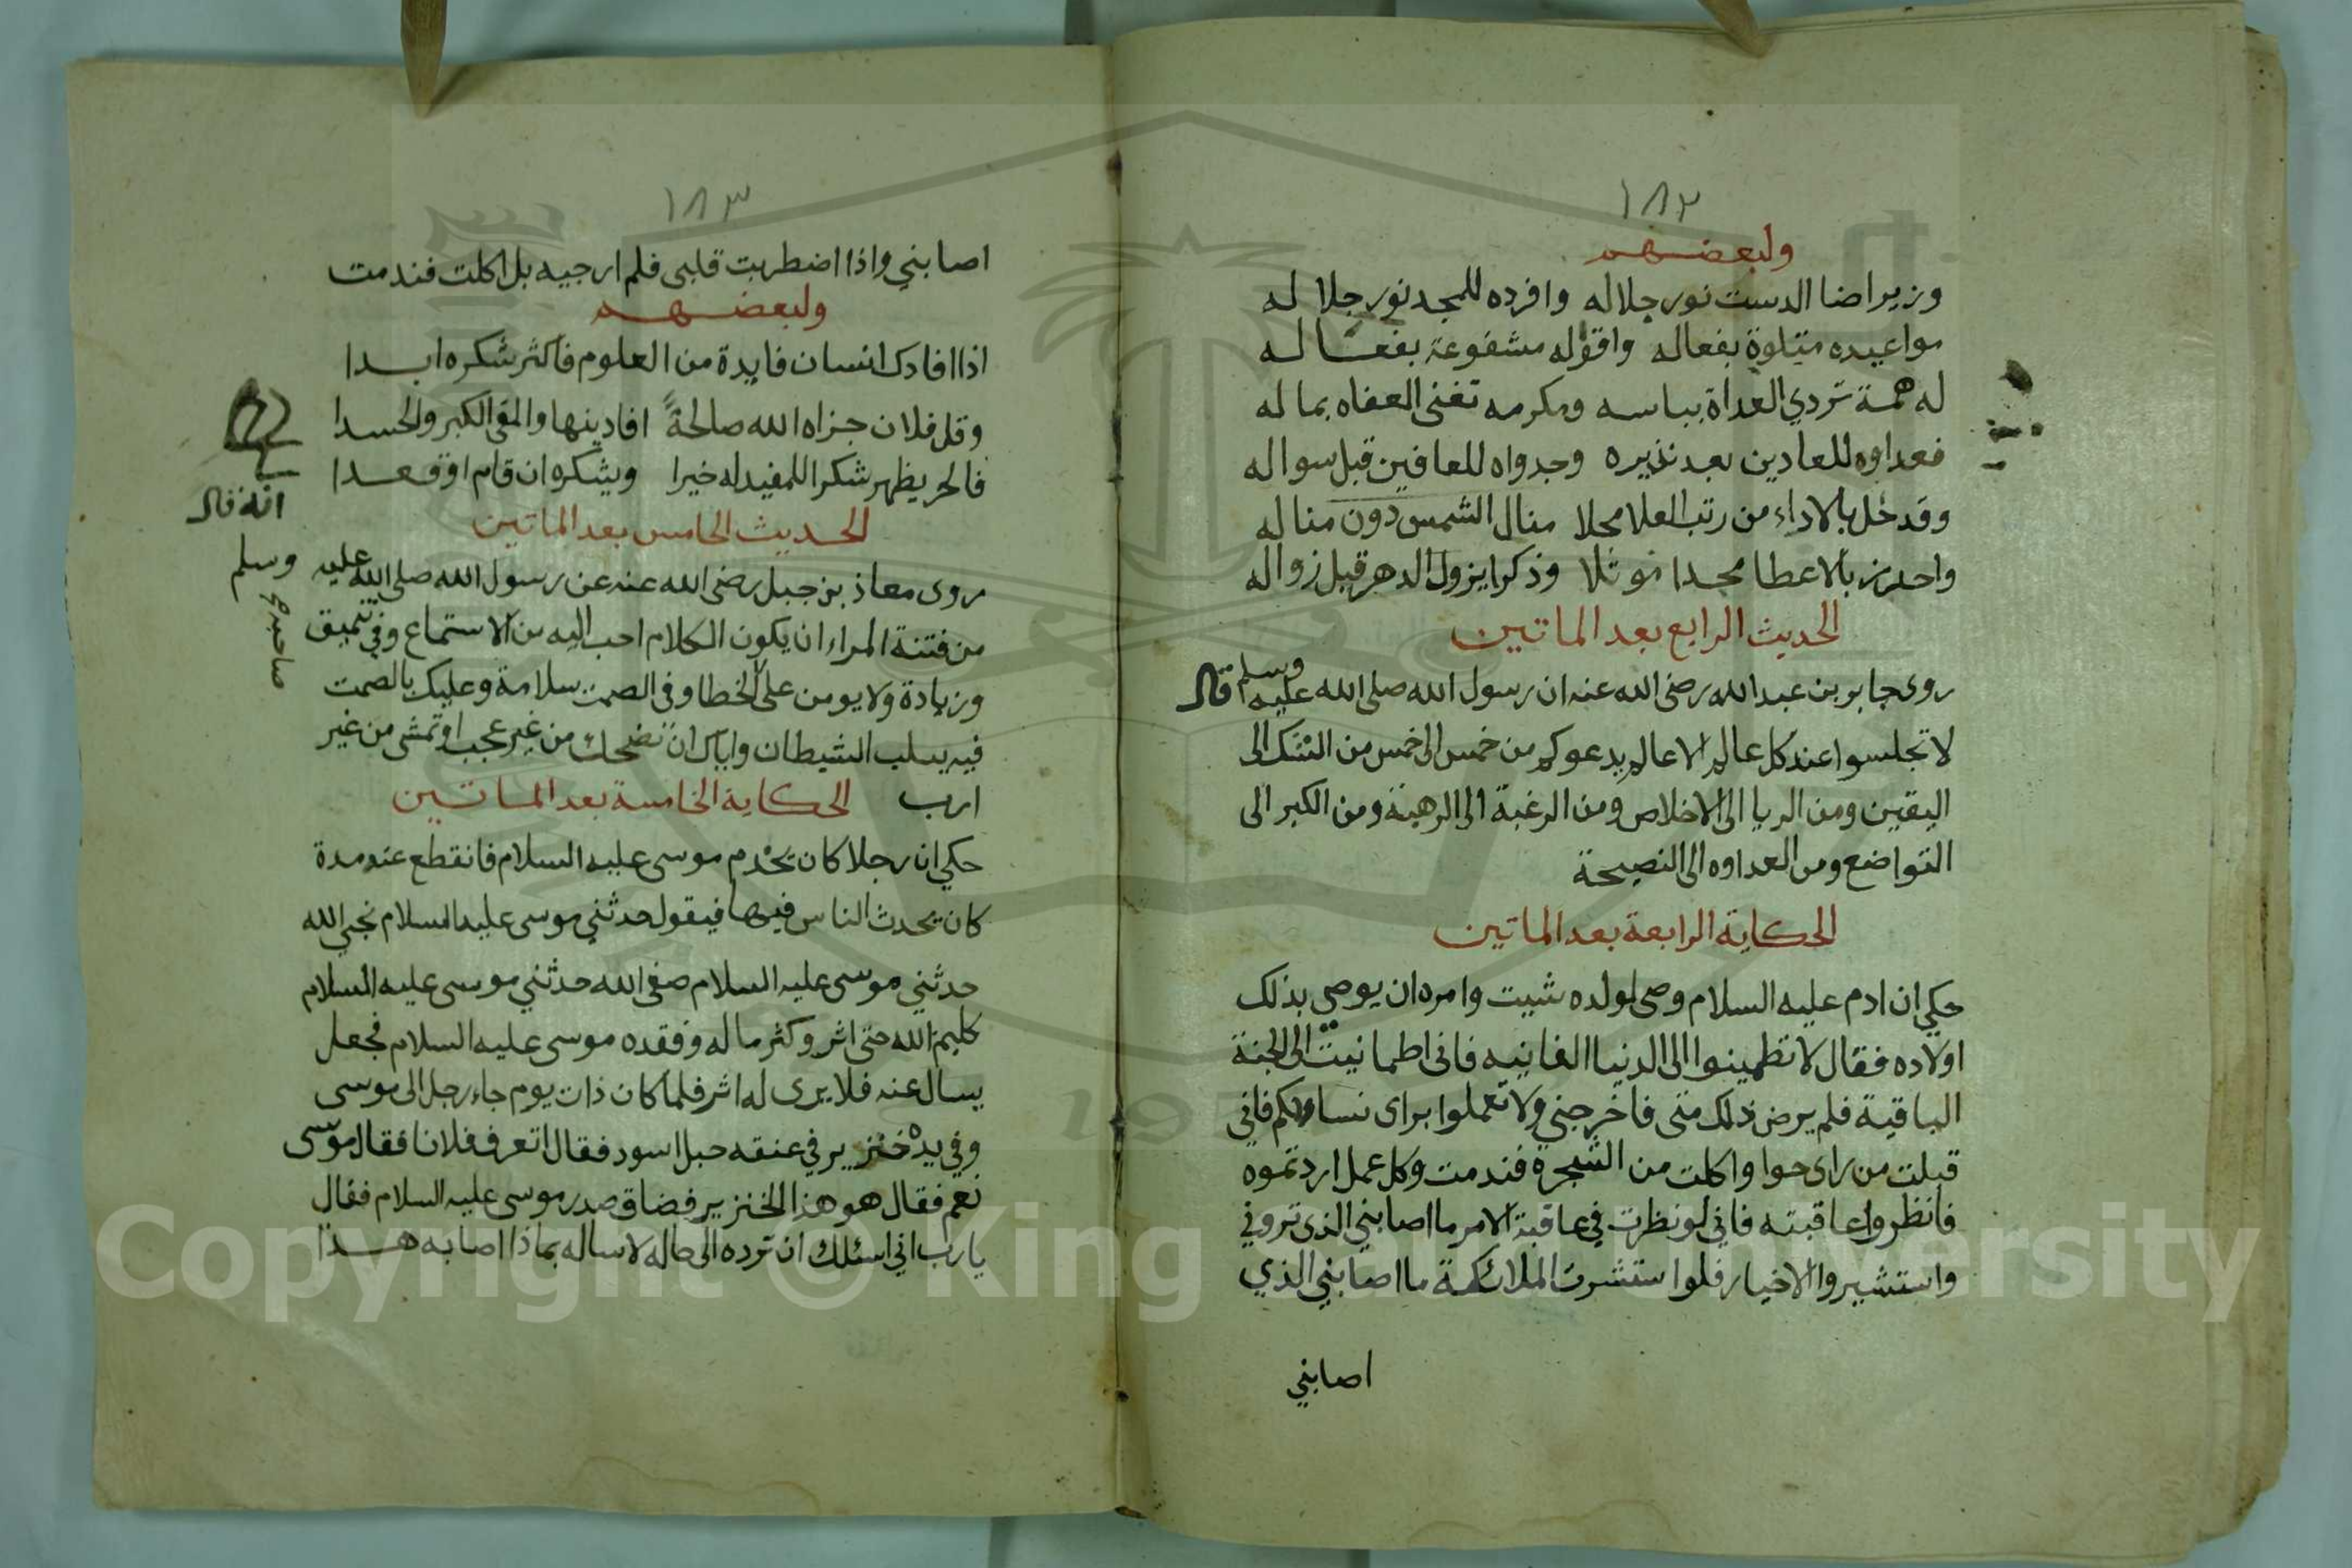 ١٨٢
ولبعضهم
وزير اضا الدست نور جلاله وافرده للمجد نور جلا له
مواعيده متلوة بفعاله واقوله مشفوعة بفعاله
له همة تردي العداة بباسه ومكرمه تغنى العفاه بما له
فعداوه للعادين بعد نذيره وجدواه للعافين قبل سواله
وقد خل بالاداء من رتب العلا محلا منال الشمس دون مناله
واحرز بالاعطا مجدا موثلا وذكرا يزول الدهر قبل زواله
الحديث الرابع بعد الماتين
روى جابر بن عبد الله رضى الله عنه ان رسول الله صلى الله عليه وسلم قال
لا تجلسوا عند كل عالم الا عالم يدعوكم من خمس الى خمس من الشك الى
اليقين ومن الريا الى الاخلاص ومن الرغبة الى الرهبة ومن الكبر الى
التواضع ومن العداوه الى النصيحة
الحكاية الرابعة بعد الماتين
حكي ان ادم عليه السلام وصى لولده شيت وامره ان يوصى بذلك
اولاده فقال لا تطمينوا الى الدنيا الفانيه فانى اطمانيت الى الجنة
الباقية فلم يرض ذلك منى فاخرجني ولا تعملوا براى نساوكم فاني
قبلت من راى حوا واكلت من الشجرة فندمت وكل عمل اردتموه
فانظروا عاقبته فاني لو نظرت في عاقبة الامر ما اصابني الذى تروني
واستشيروا الاخيار فلو استشرت الملائكة ما اصابني الذي
اصابني
١٨٣
اصابني واذا اضطربت قلبى فلم ارجيه بل اكلت فندمت
ولبعضهم
اذا افادك انسان فايدة من العلوم فاكثر شكره ابدا
وقل فلان جزاه الله صالحةً افادينها والقى الكبر والحسدا
فالحر يظهر شكرا للمفيد له خيرا ويشكره ان قام او قعدا
الحديث الخامس بعد الماتين
روى معاذ بن جبل رضى الله عنه عن رسول الله صلى الله عليه وسلم انه قال
من فتنة المراء ان يكون الكلام احب اليه من الاستماع وفي تنميق
صاحبه
وزيادة ولا يومن على الخطا وفى الصمت سلامة وعليك بالصمت
فيه يسلب الشيطان واياك ان تضحك من غير عجب او تمشى من غير
ارب الحكاية الخامسة بعد الماتين
حكي ان رجلا كان يخدم موسى عليه السلام فانقطع عنه مدة
كان يحدث الناس فيها فيقول حدثني موسى عليه السلام نجي الله
حدثني موسى عليه السلام صفى الله حدثني موسى عليه السلام
كليم الله حتى اثر وكثر ماله وفقده موسى عليه السلام فجعل
يسال عنه فلا يرى له اثر فلما كان ذات يوم جاء رجل الى موسى
وفي يده خنزير في عنقه حبل اسود فقال اتعرف فلانا فقال موسى
نعم فقال هو هذا الخنزير فضاق صدر موسى عليه السلام فقال
يا رب اني اسئلك ان ترده الى حاله لاساله بماذا اصابه هذا
Copyright © King University